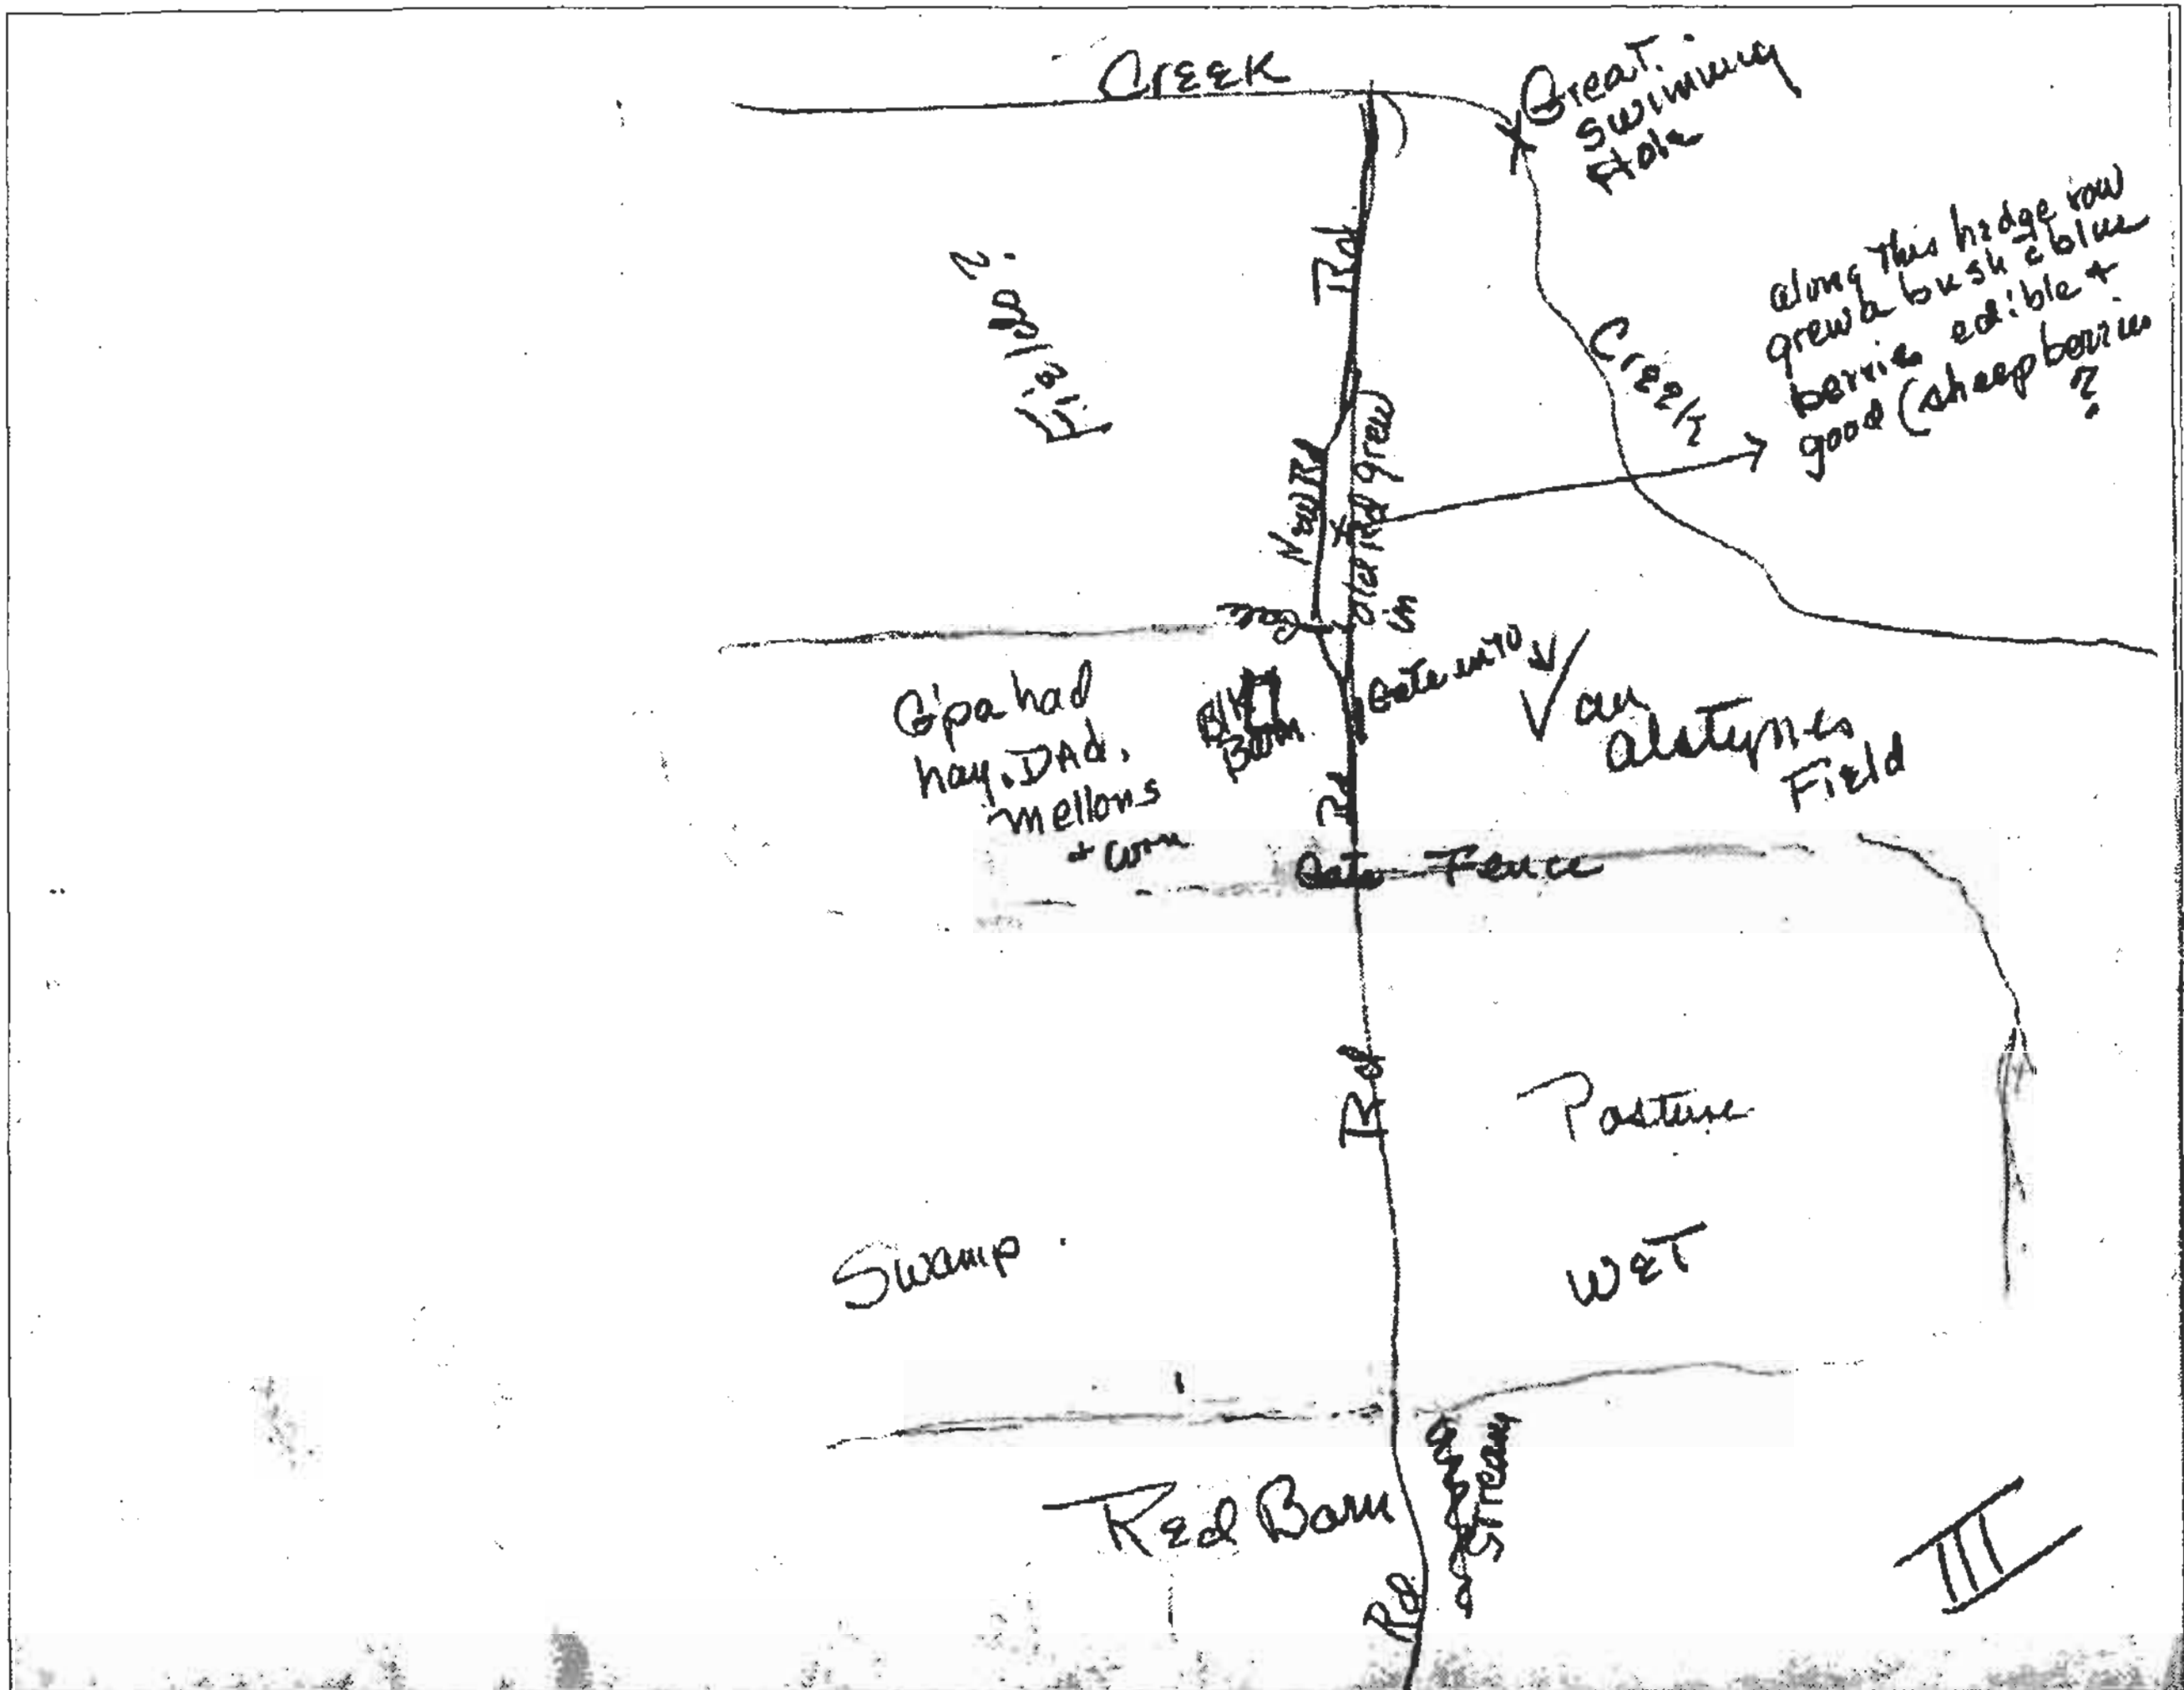 Creek
Great
Swimming
Hole
Rd
Field?
along this hedge row
grew a bush c̄ blue
berries edible +
good (sheep berries
?
Creek
New Rd
X
old Rd grew
in
G'pa had
hay. DAd.
Mellons
+ corn
Blk
Barn
Gate into
Van
Alstynes
Field
Rd
Gate Fence
Rd
Pasture
Swamp.
WET
Red Barn
Stream
Rd.
III